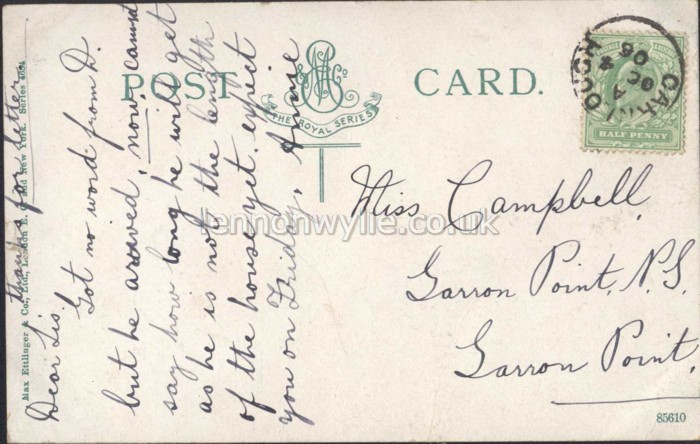 POST CARD.
THE ROYAL SERIES
HALF PENNY
CARNLOUGH
Miss Campbell,
Garron Point, N.S.
Garron Point,
Dear Sis.
thanks for letter
Got no word from D.
but he arrived, now, cannot
say how long he will get
as he is not the length
of the house yet. expect
you on Friday. Annie
Max Ettlinger & Co., Ltd., London E. C. and New York. Series
85610
lennonwylie.co.uk